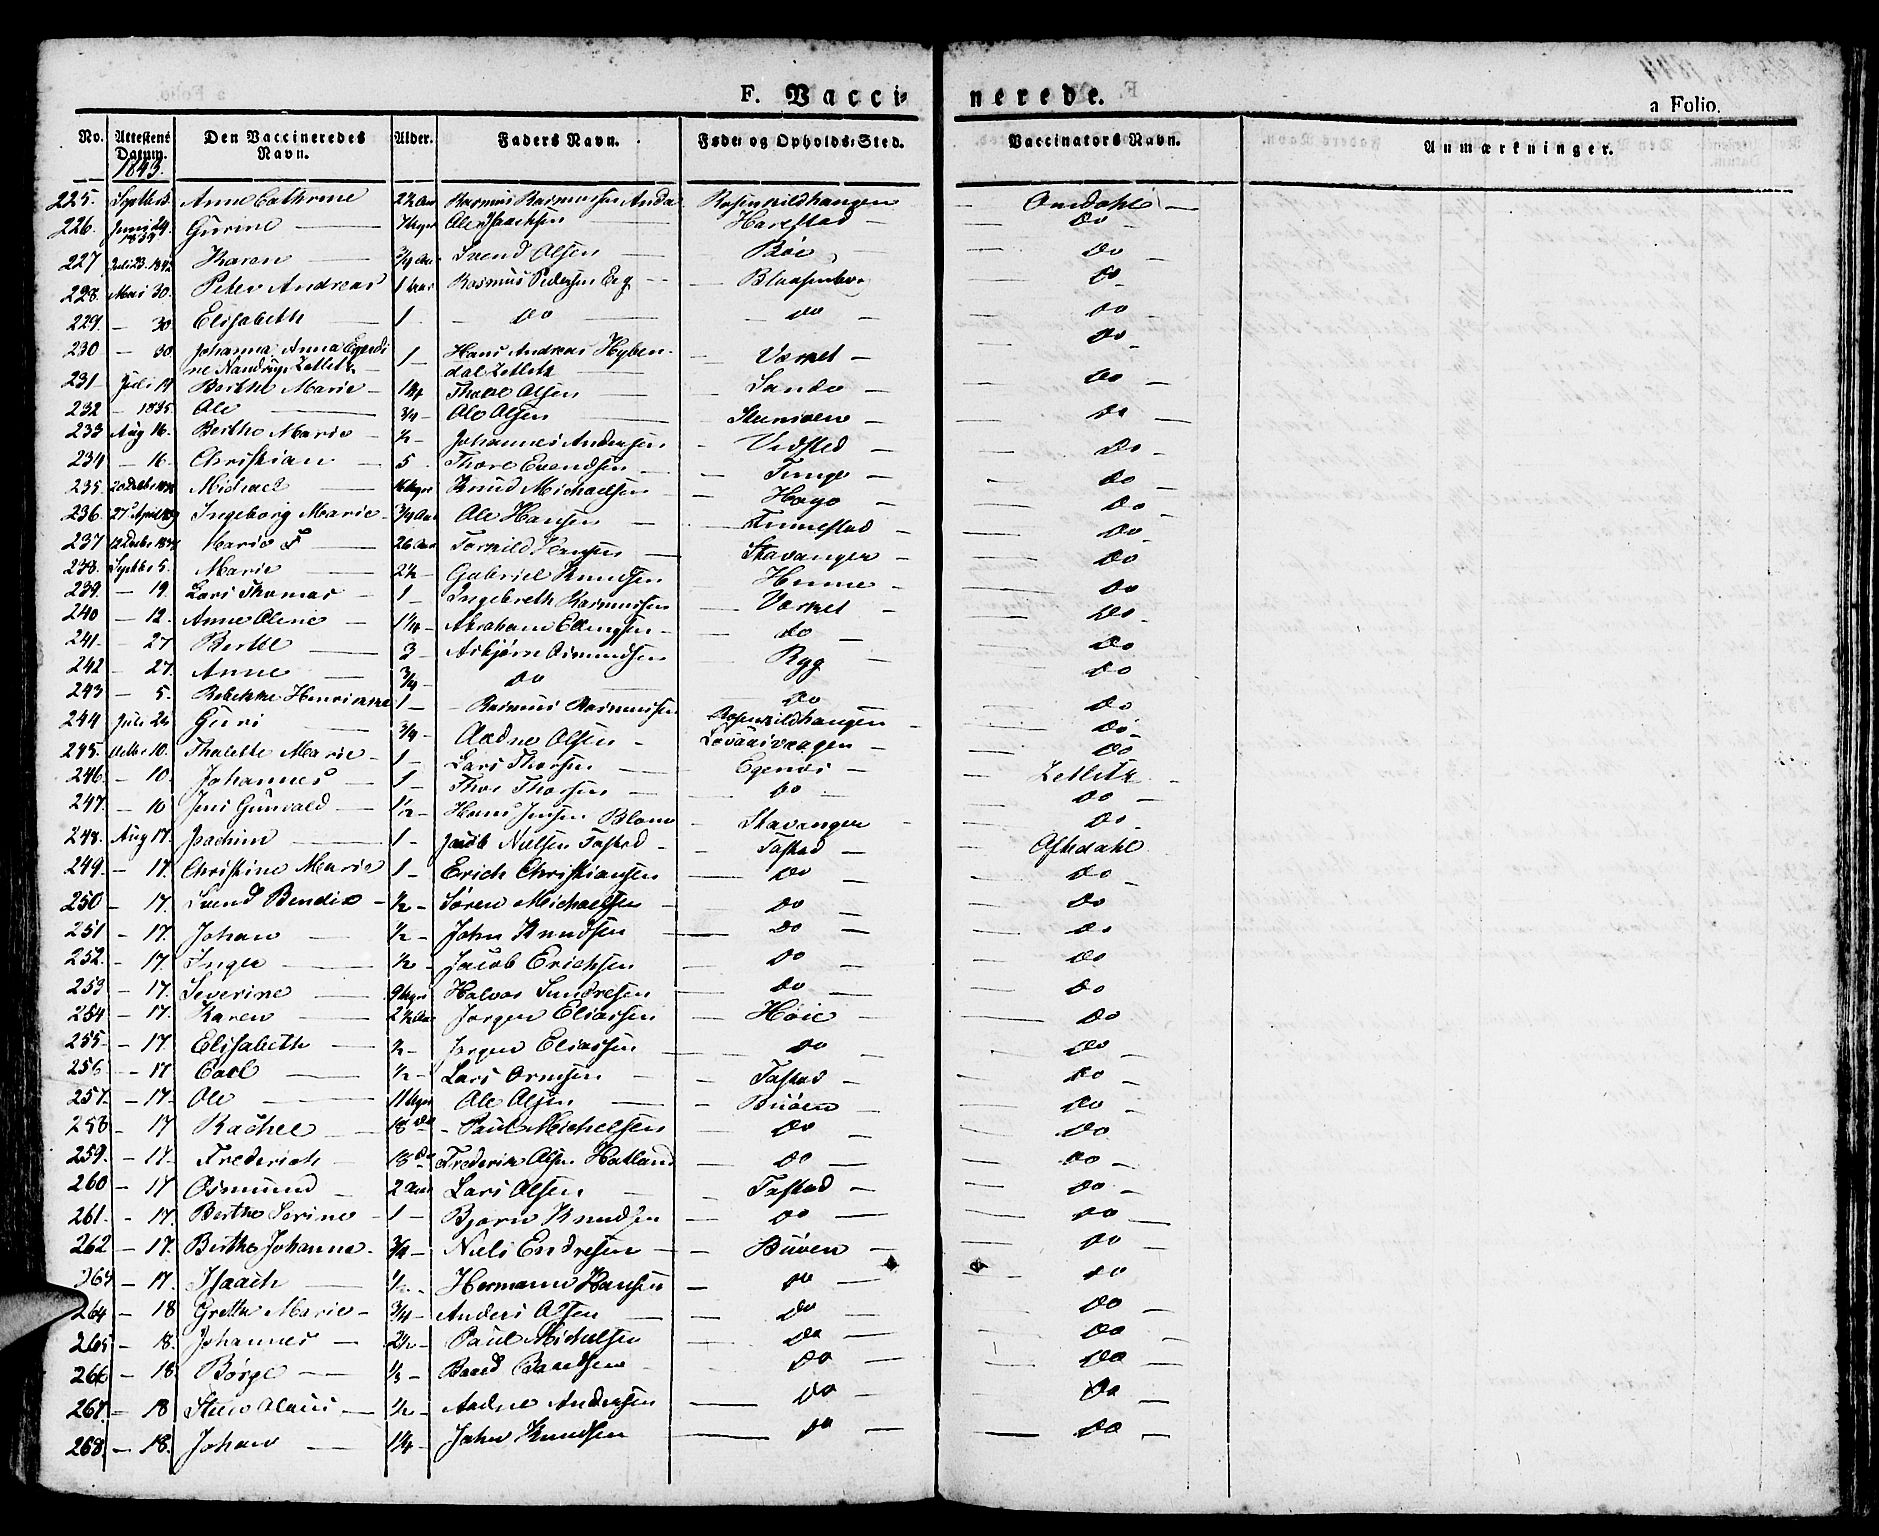 F. Vacci-
nerede.
a Folio.
No. Attestens Datum. Den Vaccineredes Navn. Alder. Faders Navn. Føde- og Opholds-Sted. Vaccinators Navn. Anmærkninger.
1843.
225. Septbr Anne Cathrine 2½ Aar Rasmus Rasmussen Rosenkildhaugen
226. Juni 29. 1839 Gurine 7 Uger Ole Isachsen Harestad Do
227 Juli 23. 1842 Karen ¾ Aar Svend Olsen Bøe Do
228. Mai 30. Peter Andreas 1 Aar Rasmus Pedersen Do
229. - 30. Elisabeth 1 - Do Do Do
230 - 30. Johanna Anna 1 - Hans Andreas Hyben- Værket - Do
ne Nandrup Zetlitz dal Zetlitz
231 Juli 14 Berthe Marie 1¼ Olsen Sande - Do
232 - 1835. Ole ¾ - Ole Olsen Do
233 Aug 16. Berthe Marie ½ - Johannes Andersen Vedsted - Do
234 - 16. Christian 5 Thore Evendsen Tunge - Do
235. Michael Knud Michaelsen Do
236. Ingeborg Marie ¾ Aar Ole Hansen Finnestad Do
237 Marie 26 Aar Torkild Hansen Stavanger Do
238. Septbr 5. Marie 2½ - Gabriel Knudsen Do
239. - 19. Lars Thomas 1 - Ingebreth Rasmussen Værket Do
240 - 12. Anne Oline 1¼ - Abraham Ellingsen Do Do
241. - 27 Berthe 3 - Asbjørn Osmundsen Rygg Do
242 - 27. Anne ¾ - Do Do Do
243 - 5. Rebekke Henrikke 1 - Rasmus Rasmussen Rosenkildhaugen Do
244 Juli 24 Guri ¾ - Aadne Olsen Do
245. Octbr 10. Thalette Marie 1 - Lars Thorsen Egenæs - Zetlitz
246. - 10. Johannes 1 - Thor Thorsen Do Do
247. - 10 Jens Gunvald 1½ - Hans Jensen Blom Stavanger Do
248. Aug 17. Joachim 1 - Jacob Nielsen Tastad Tastad
249. - 17. Christine Marie 1 - Erich Christiansen Do Do
250 - 17. Svend Bendix ½ - Søren Michaelsen Do Do
251 - 17. Johan ½ - John Knudsen Do Do
252. - 17. Inger ½ - Jacob Erichsen Do Do
253 - 17. Severine 9 Uger Halvor Sundresen Do Do
254 - 17. Karen 2½ Aar Jørgen Eliassen Høie Do
255. - 17. Elisabeth ½ - Jørgen Eliassen Do Do
256 - 17 Carl ½ - Lars Ormsen Tastad - Do
257. - 17. Ole 11 Uger Ole Olsen Buøen Do
258 - 17 Rachel 18 Do Paul Michelsen Do Do
259. - 17. Frederich 18 Do Frederik Olsen Hatland Do Do
260 - 17 Osmund 2 Aar Lars Olsen Tastad - Do
261. - 17. Berthe Serine 1 - Bjørn Knudsen Do Do
262 - 17. Berthe Johanne ¾ - Niels Endresen Buøen Do
263 - 17. Isaach ½ - Hermann Hansen Do Do
264 - 18 Grethe Marie ¾ - Anders Olsen Do Do
265 - 18. Johannes 2½ - Paul Michelsen Do Do
266 - 18. Børge ⅓ - Baard Baardsen Do Do
267. - 18 ½ - Aadne Andersen Do Do
268. - 18. Johan 1¼ - John Knudsen Do Do